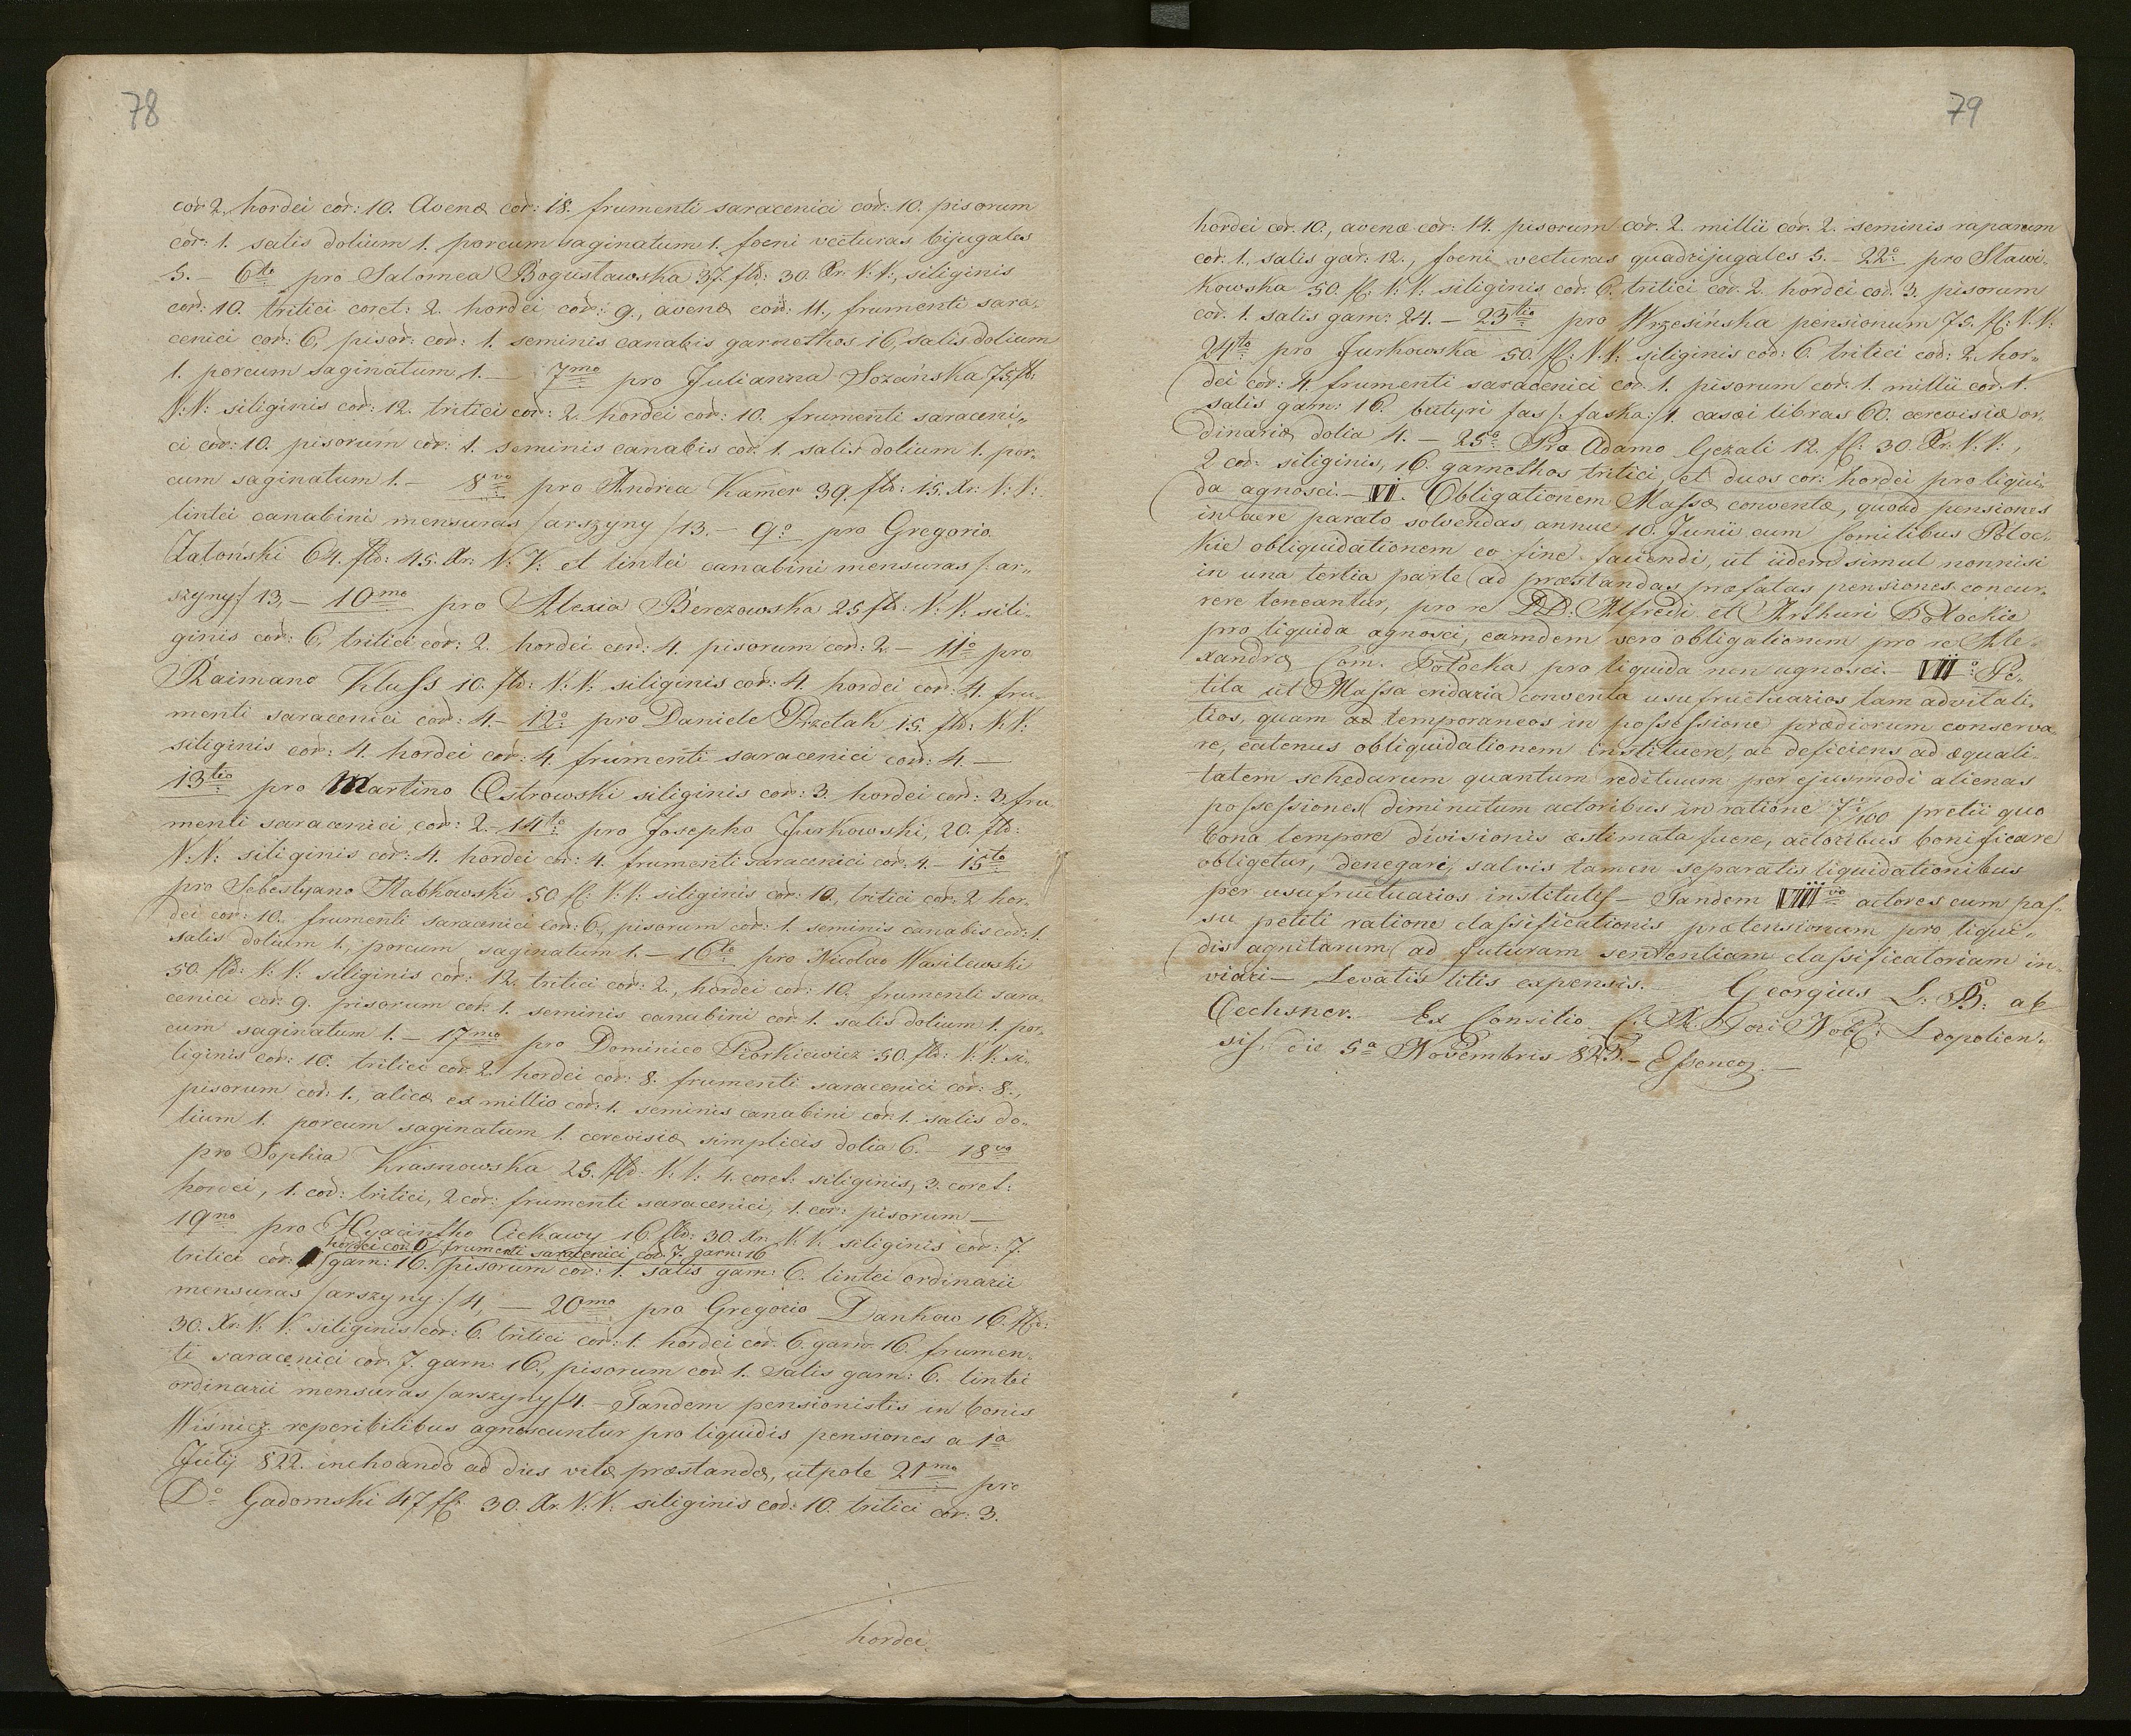 78
cor 2. hordei cor: 10. Avenæ cor: 18. frumenti saracenici cor: 10. pisorum
cor: 1. salis dolium 1. porcum saginatum 1. foeni vecturas bijugales
5. – 6to pro Salomea Bogusławska 37. fld: 30. Xr. V. V., siliginis
cor: 10. tritici coret: 2. hordei cor: 9., avenæ cor: 11., frumenti sara-
cenici cor: 6, pisor: cor: 1. seminis canabis garnethos 16, salis dolium
1. porcum saginatum 1. – 7mo pro Julianna Sozańska 75 fld:
V: V: siliginis cor: 12. tritici cor: 2. hordei cor: 10. frumenti saraceni„
ci cor: 10. pisorum cor: 1. seminis canabis cor. 1. salis dolium 1. por„
cum saginatum 1. – 8vo pro Andrea Kamer 39. fld: 15. Xr: V: V:
lintei canabini mensuras /arszyny/ 13. – 9o pro Gregorio
Zatoński 64. fld: 45. Xr: V: V: et lintei canabini mensuras /: ar„
szyny:/ 13, – 10mo pro Alexia Berezowska 25 fld: V: V: sili„
ginis cor: 6, tritici cor: 2. hordei cor: 4. pisorum cor: 2 – 11o pro
Raimano Kluss 10. fld: V: V: siliginis cor: 4. hordei cor: 4. fru-
menti saracenici cor: 4. – 12o pro Daniele Przetak 15. fld: V: V:
siliginis cor: 4. hordei cor: 4. frumenti saracenici cor: 4. –
13tio pro Martino Ostrowski siliginis cor: 3. hordei cor: 3. fru
menti saracenici cor: 2. – 14to pro Josepho Jurkowski, 20. fld:
V: V: siliginis cor: 4. hordei cor: 4. frumenti saracenici cor. 4. – 15to
pro Sebestyano Habkowski 50 fl: V: V: siliginis cor: 10, tritici cor. 2 hor-
dei cor: 10. frumenti saracenici cor: 6, pisorum cor: 1. seminis canabis cor: 1.
salis dolium 1, porcum saginatum 1. – 16to pro Nicolao Wasilewski
50. fld: V: V: siliginis cor: 12. tritici cor: 2., hordei cor: 10. frumenti sara-
cenici cor: 9. pisorum cor: 1. seminis canabini cor. 1. salis dolium 1. por-
cum saginatum 1. – 17mo pro Dominico Piorkiewicz 50. fld: V: V: si-
liginis cor: 10. tritici cor. 2. hordei cor: 8. frumenti saracenici cor: 8.,
pisorum cor: 1., alicæ ex millio cor: 1. seminis canabini cor: 1. salis do„
lium 1. porcum saginatum 1. cerevisiæ simplicis dolia 6. – 18vo
pro Sophia Krasnowska 25. fld: V: V: 4. coret: siliginis, 3. coret:
hordei, 1. cor: tritici, 2 cor: frumenti saracenici, 1. cor: pisorum –
19no pro Hyacintho Ciekawy 16 fld: 30. Xr. V: V: siliginis cor: 7.
hordei cor: 6 / frumenti saracenici cor. 7. garn: 16
tritici cor: 1 / garn: 16. / pisorum cor: 1. salis garn: 6. lintei ordinarii
mensuras /arszyny:/ 4, – 20mo pro Gregorio Dankow 16. fld:
30. Xr. V: V: siliginis cor: 6. tritici cor: 1. hordei cor. 6. garn. 16. frumen-
ti saracenici cor. 7. garn: 16, pisorum cor 1. salis garn: 6. lintei
ordinarii mensuras /arszyny/ 4. – Tandem pensionistis in bonis
Wiśnicz. reperibilibus agnoscuntur pro liquidis pensiones a 1a
Julij 822. inchoando ad dies vitæ præstandæ, utpote 21mo pro
Do Gadomski 47 fl. 30. Xr. V: V: siliginis cor: 10. tritici cor: 3.
hordei
79
hordei cor. 10., avenæ cor: 14. pisorum cor. 2. millii cor. 2. seminis raparum
cor. 1., salis gar: 12., foeni vecturas quadrijugales 5. – 22o pro Stawi-
kowska 50. fl. V: V: siliginis cor: 6. tritici cor. 2. hordei cor. 3. pisorum
cor. 1. salis garn: 24. – 23tio pro Wrzesińska pensionum 75. fl: V: V:
24to pro Jurkowska 50. fl: V: V: siliginis cor: 6. tritici cor: 2. hor„
dei cor: 4. frumenti saracenici cor. 1. pisorum cor. 1. millii cor. 1.
salis garn: 16. butyri fas /: faska:/ 1. casæi libras 60. cerevisiæ or-
dinariæ dolia 4. – 25o Pro Adamo Gezali 12. fl: 30. Xr: V: V:,
2 cor: siliginis, 16. garnethos tritici, et duos cor: hordei pro liqui-
da agnosci. – VI. Obligationem Massæ conventæ, quoad pensiones
in aere parato solvendas annue 10. Junii cum similibus Potoc-
kie obliquidationem eo fine faciendi, ut iidem simul nonnisi
in una tertia parte ad præstandas præfatas pensiones concur-
rere teneantur, pro re DD. Alfredi et Arthuri Potockie
pro liquida agnosci, eamdem vero obligationem pro re Ale-
xandræ Com. Potocka pro liquida non agnosci. – VIIo Pe-
tita ut Massa cridaria conventa usufructuarios tam advitali-
tios, quam ad temporaneos in possessione prædiorum conserva-
re, eatenus obliquidationem instituere, ac deficiens ad æquali-
tatem schedarum quantum redituum per ejusmodi alienas
possessiones diminutum actoribus in ratione 7/100 pretii quo
bona tempore divisionis æstimata fuere, actoribus bonificare
obligetur, denegari, salvis tamen separatis liquidationibus
per usufructuarios institutis – Tandem VIIIvo actores cum pas-
su petiti ratione classificationis prætensionum pro liqui-
dis agnitarum ad futuram sententiam classificatoriam in-
viari – Levatis litis expensis. – Georgius L: B: ab
Oechsner. – Ex Consilio C. R. Fori Nob: Leopolien-
sis die 5a Novembris 823. –